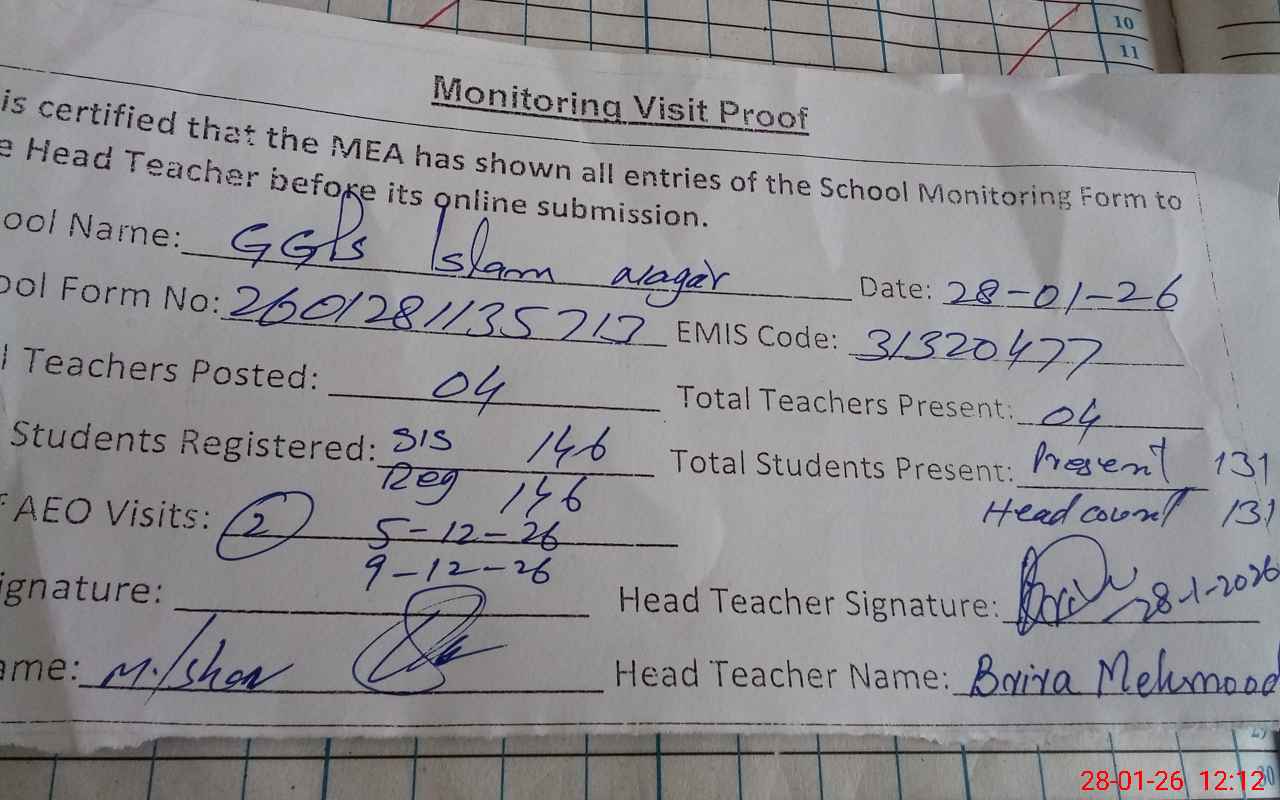 10
11
Monitoring Visit Proof
is certified that the MEA has shown all entries of the School Monitoring Form to
e Head Teacher before its online submission.
ool Name: GGPS Islam Nagar Date: 28-01-26
ool Form No: 2601281135717 EMIS Code: 31320477
l Teachers Posted: 04 Total Teachers Present: 04
Students Registered: SIS 146 Total Students Present: Present 131
Reg 146 Head count 131
f AEO Visits: 2 5-12-26
9-12-26
ignature: Head Teacher Signature: 28-1-2026
ame: M. Ishan Head Teacher Name: Brira Mehmood
29
30
28-01-26 12:12